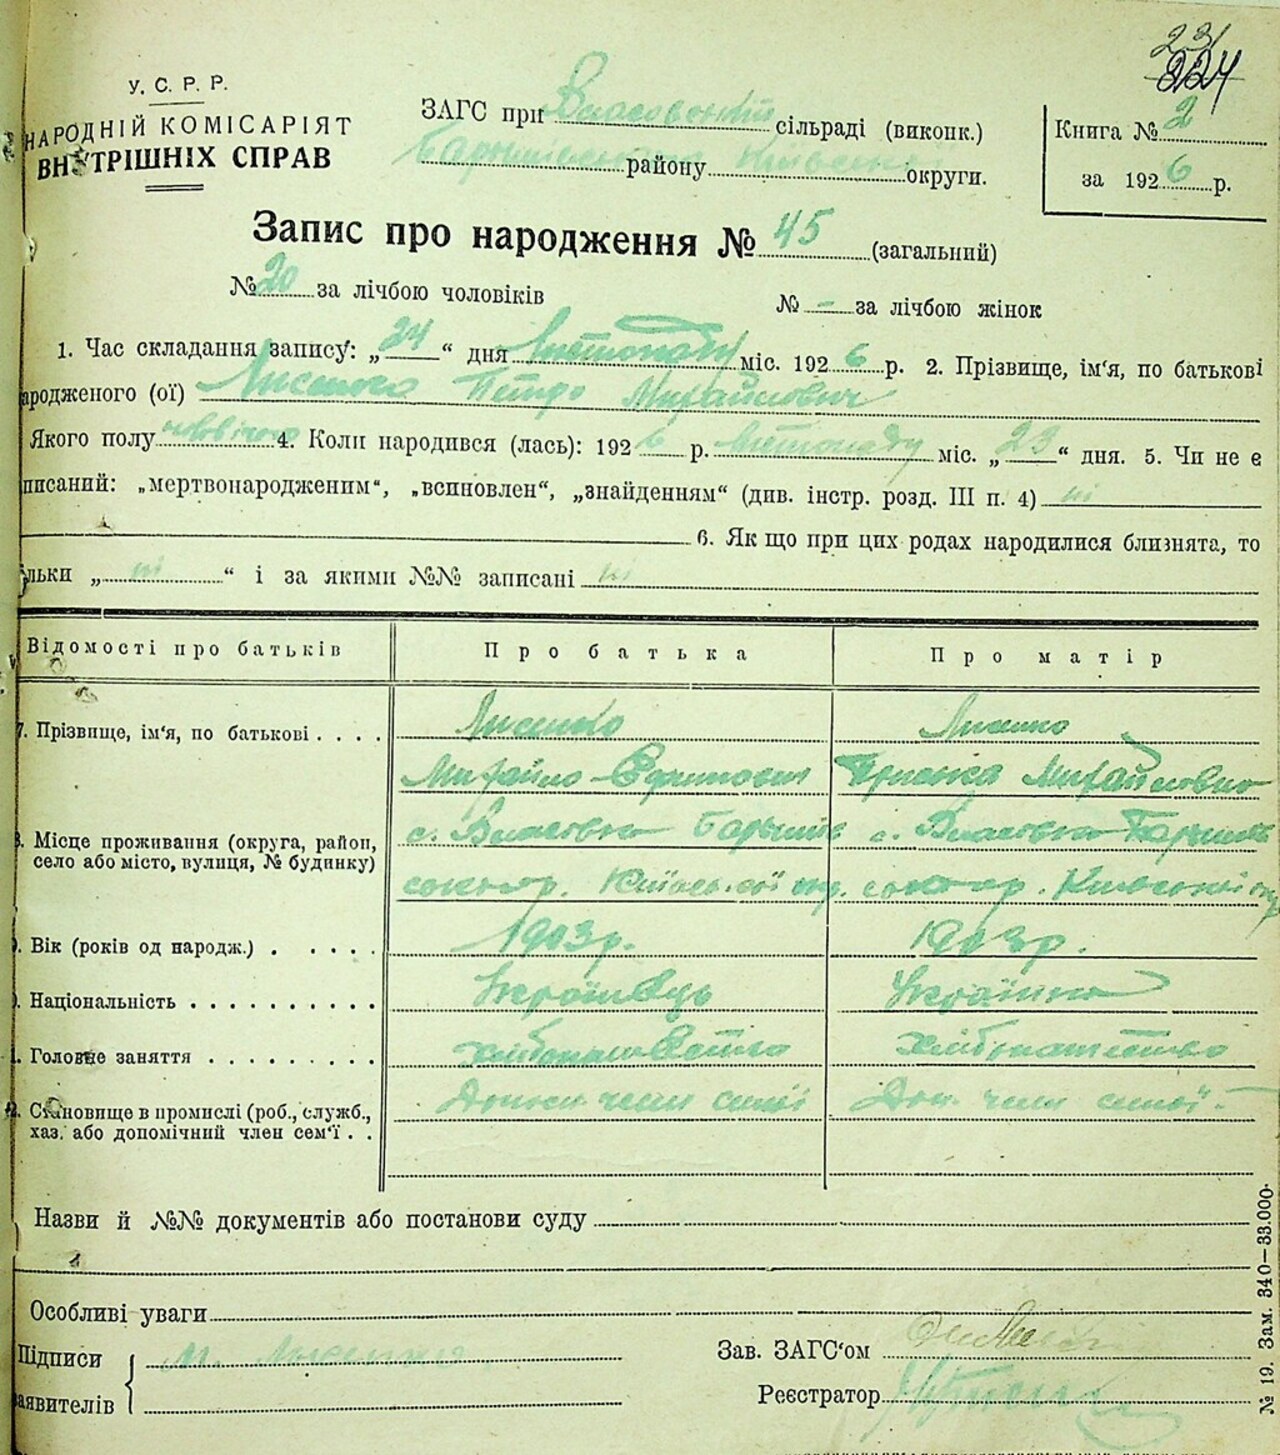 23
224
У. С. Р. Р.
НАРОДНІЙ КОМІСАРІЯТ
ВНУТРІШНІХ СПРАВ
ЗАГС при Власовській сільраді (виконк.)
Баришівського району Київської округи.
Книга № 2
за 1926 р.
Запис про народження № 45 (загальний)
№ 20 за лічбою чоловіків № – за лічбою жінок
1. Час складання запису: „24“ дня листопаду міс. 1926 р. 2. Прізвище, ім'я, по батькові
народженого (ої) Лисенко Петро Михайлович
Якого полу чоловічого 4. Коли народився (лась): 1926 р. листопаду міс. „23“ дня. 5. Чи не є
писаний: „мертвонародженим“, „всиновлен“, „знайденням“ (див. інстр. розд. III п. 4) ні
6. Як що при цих родах народилися близнята, то
льки „ні“ і за якими №№ записані ні
Відомості про батьків Про батька Про матір
7. Прізвище, ім'я, по батькові . . . . Лисенко Лисенко
Михайло Ефимович Приська Михайловна
Місце проживання (округа, район, село або місто, вулиця, № будинку) с. Власовка Баришів с. Власовка Баришів
ського р. Київської окр. ського р. Київської окр.
Вік (років од народж.) . . . . . 1903 р. 1903 р.
Національність . . . . . . . . . . Українець Українка
Головне заняття . . . . . . . . . хліборобство хліборобство
Становище в промислі (роб., служб., хаз. або допомічний член сем'ї . . Допом. член сем'ї Доп. член сем'ї
Назви й №№ документів або постанови суду
Особливі уваги
Підписи
заявителів
М. Лисенко
Зав. ЗАГС'ом
Реєстратор
№ 19. Зам. 340—33.000.